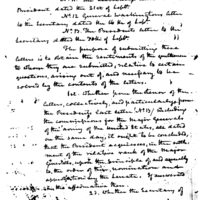 President dated 21st of Sept.
No. 12 General Washingtons letter
to the Secretary dated the 6th of Sept.
No. 13. The Presidents letter to the
Secretary dated the 30th of Sept.
The purpose of submitting these
letters is to obtain the sentiments of the gentlemen
to whom they are submitted, relative to certain
questions, arising out of, and necessary to be re-
solved by the contents of the letters.
1st. Whether from the tenor of the
letters, collectively, and particularly from
the Presidents last letter No. 13, including
the commissions for the Major Generals
of the army of the United States, all dated
on the same day, it ought to be concluded,
that the President acquiesces, in the
ment of the relative rank of the Major
Generals, upon the principle of
to the order of their nominations and
approbation by the Senate.
in the affirmative
2d. Whether the Secretary of